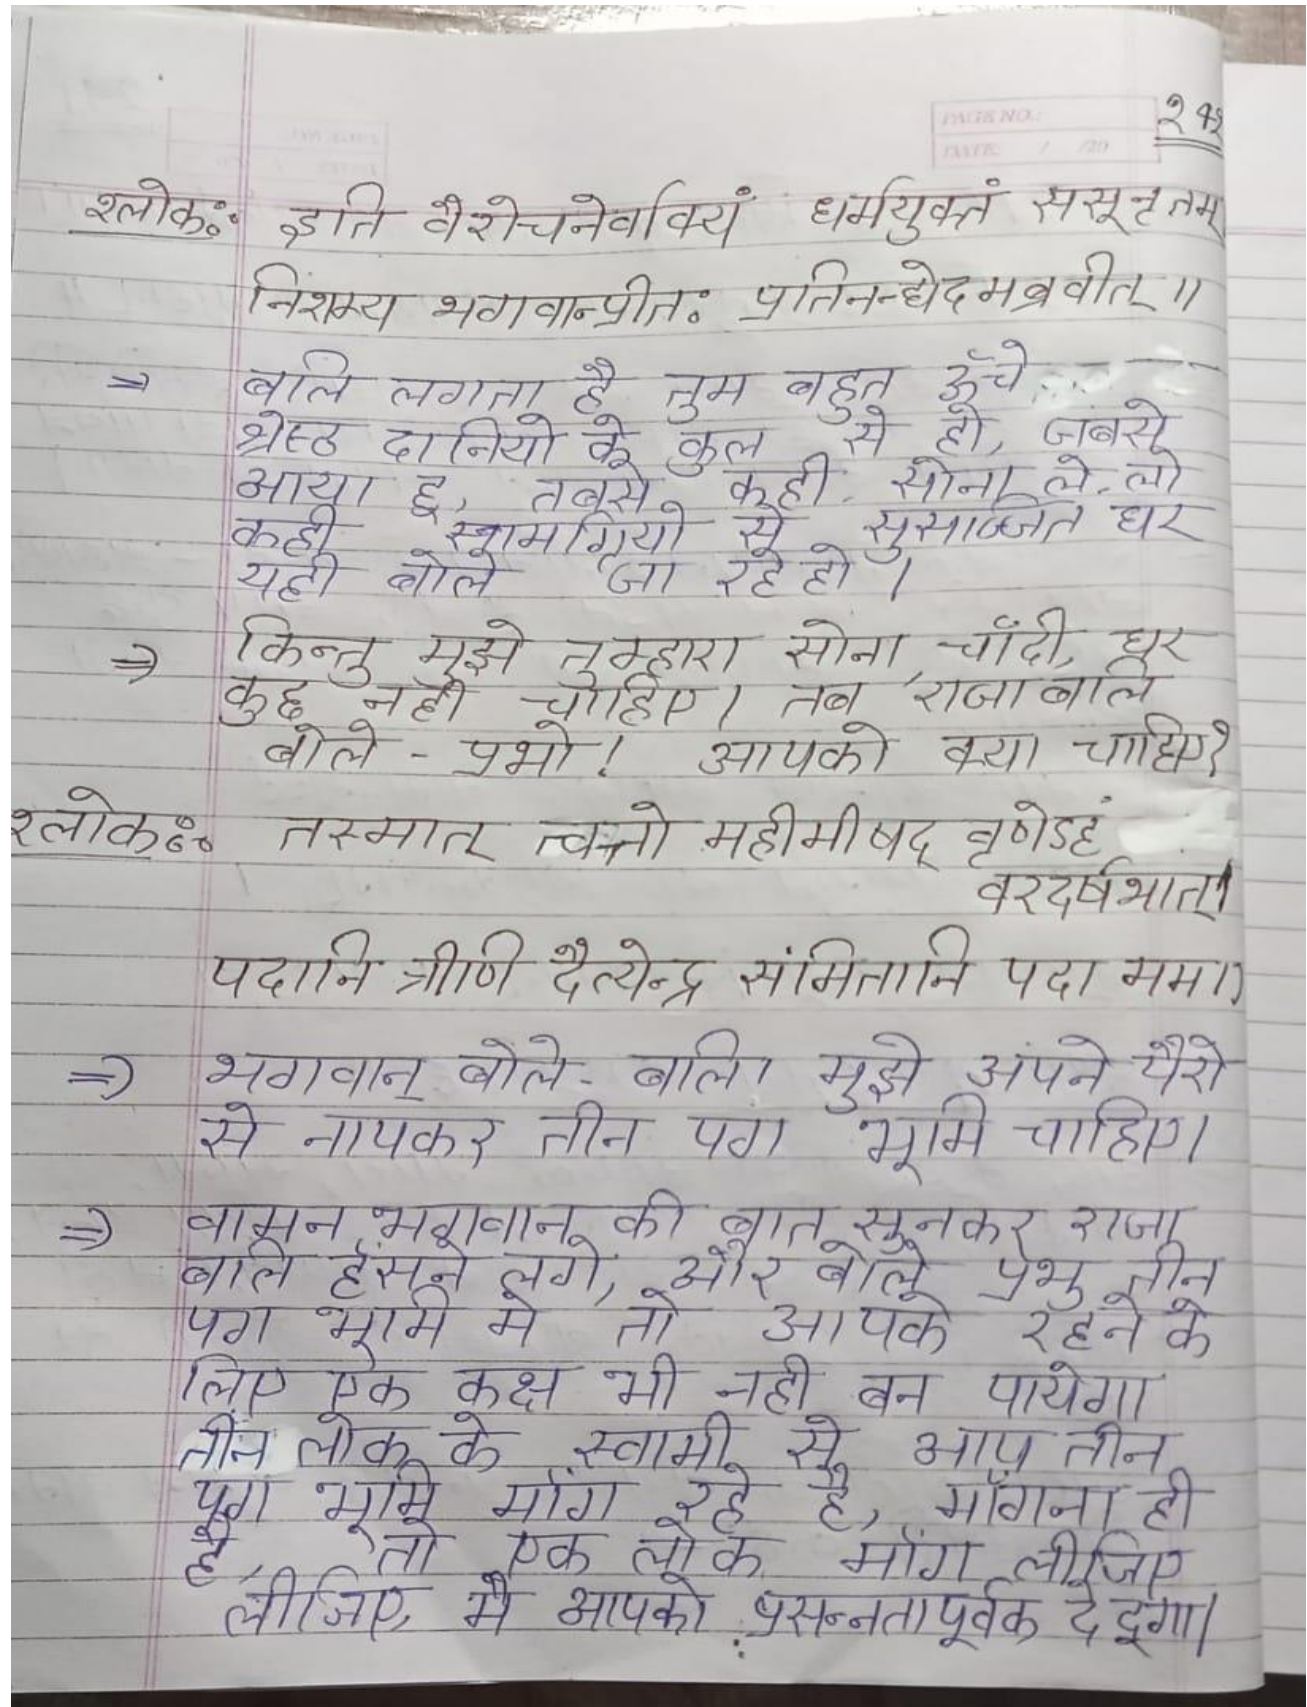 PAGE NO.:
DATE: / /20
श्लोकः इति वैरोचनेर्वाक्यं धर्मयुक्तं ससूनृतम्
निशम्य भगवान्प्रीतः प्रतिनन्द्येदमब्रवीत् ॥
⇒ बलि लगता है तुम बहुत ऊँचे
श्रेस्ठ दानियो के कुल से हो, जबसे
आया हू, तबसे कही सोना ले लो
कही सामग्रियो से सुसज्जित घर
यही बोले जा रहे हो।
⇒ किन्तु मुझे तुम्हारा सोना, चाँदी, घर
कुछ नही चाहिए। तब राजा बलि
बोले - प्रभो! आपको क्या चाहिए?
श्लोकः तस्मात् त्वत्तो महीमीषद् वृणेऽहं
वरदर्षभात्।
पदानि त्रीणि दैत्येन्द्र संमितानि पदा मम॥
⇒ भगवान् बोले- बलि। मुझे अपने पैरो
से नापकर तीन पग भूमि चाहिए।
⇒ वामन भगवान की बात सुनकर राजा
बलि हँसने लगे, और बोले प्रभु तीन
पग भूमि मे तो आपके रहने के
लिए एक कक्ष भी नही बन पायेगा
तीन लोक के स्वामी से आप तीन
पग भूमि माँग रहे है, माँगना ही
है, तो एक लोक माँग लीजिए
लीजिए, मै आपको प्रसन्नतापूर्वक दे दूगा।